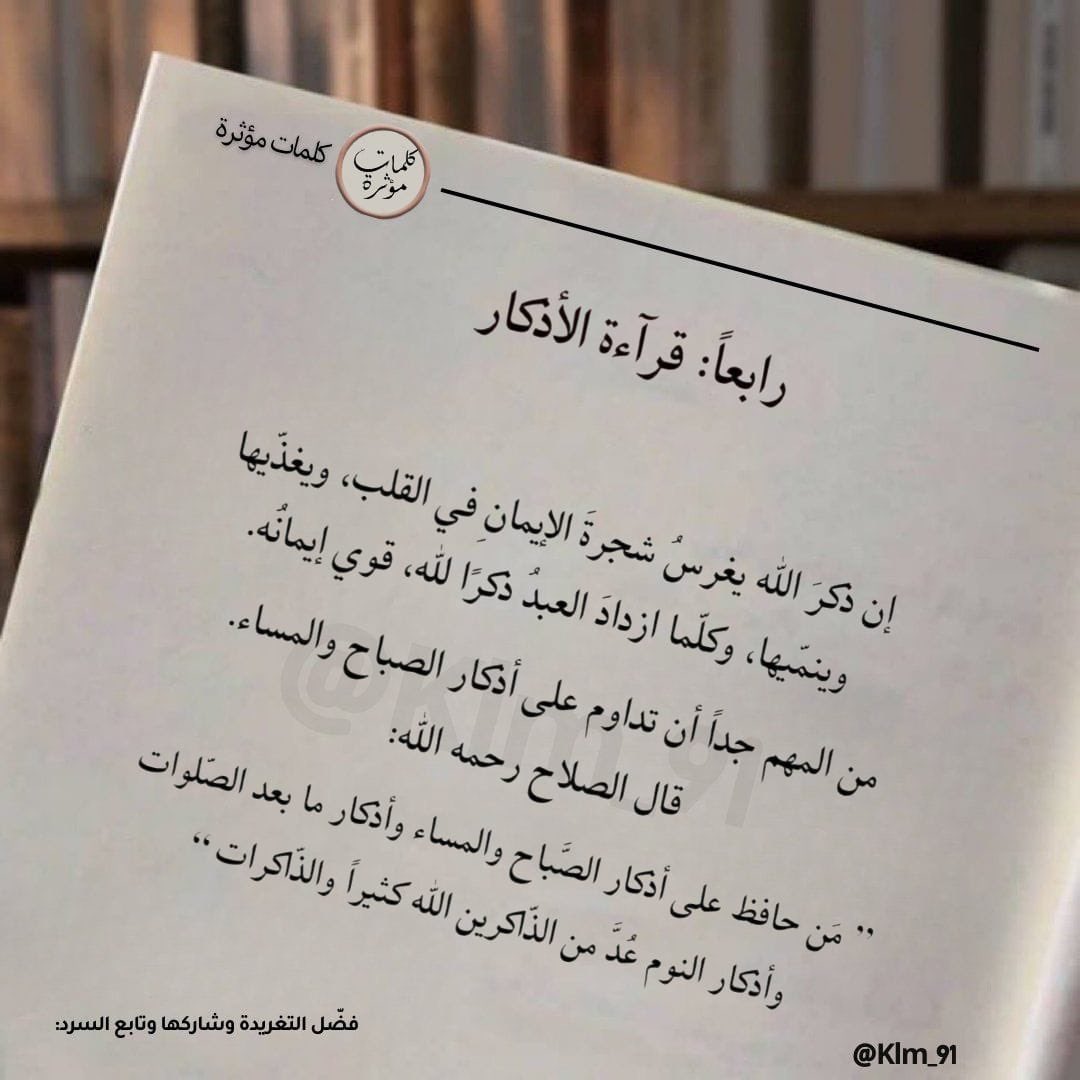 كلمات مؤثرة
كلمات
مؤثرة
رابعاً: قرآءة الأذكار
إن ذكرَ الله يغرسُ شجرةَ الإيمانِ في القلب، ويغذّيها
وينمّيها، وكلّما ازدادَ العبدُ ذكرًا لله، قوي إيمانُه.
من المهم جداً أن تداوم على أذكار الصباح والمساء.
قال الصلاح رحمه الله:
” مَن حافظ على أذكار الصَّباح والمساء وأذكار ما بعد الصّلوات
وأذكار النوم عُدَّ من الذّاكرين الله كثيراً والذّاكرات “
@Klm_91
فضّل التغريدة وشاركها وتابع السرد:
@Klm_91